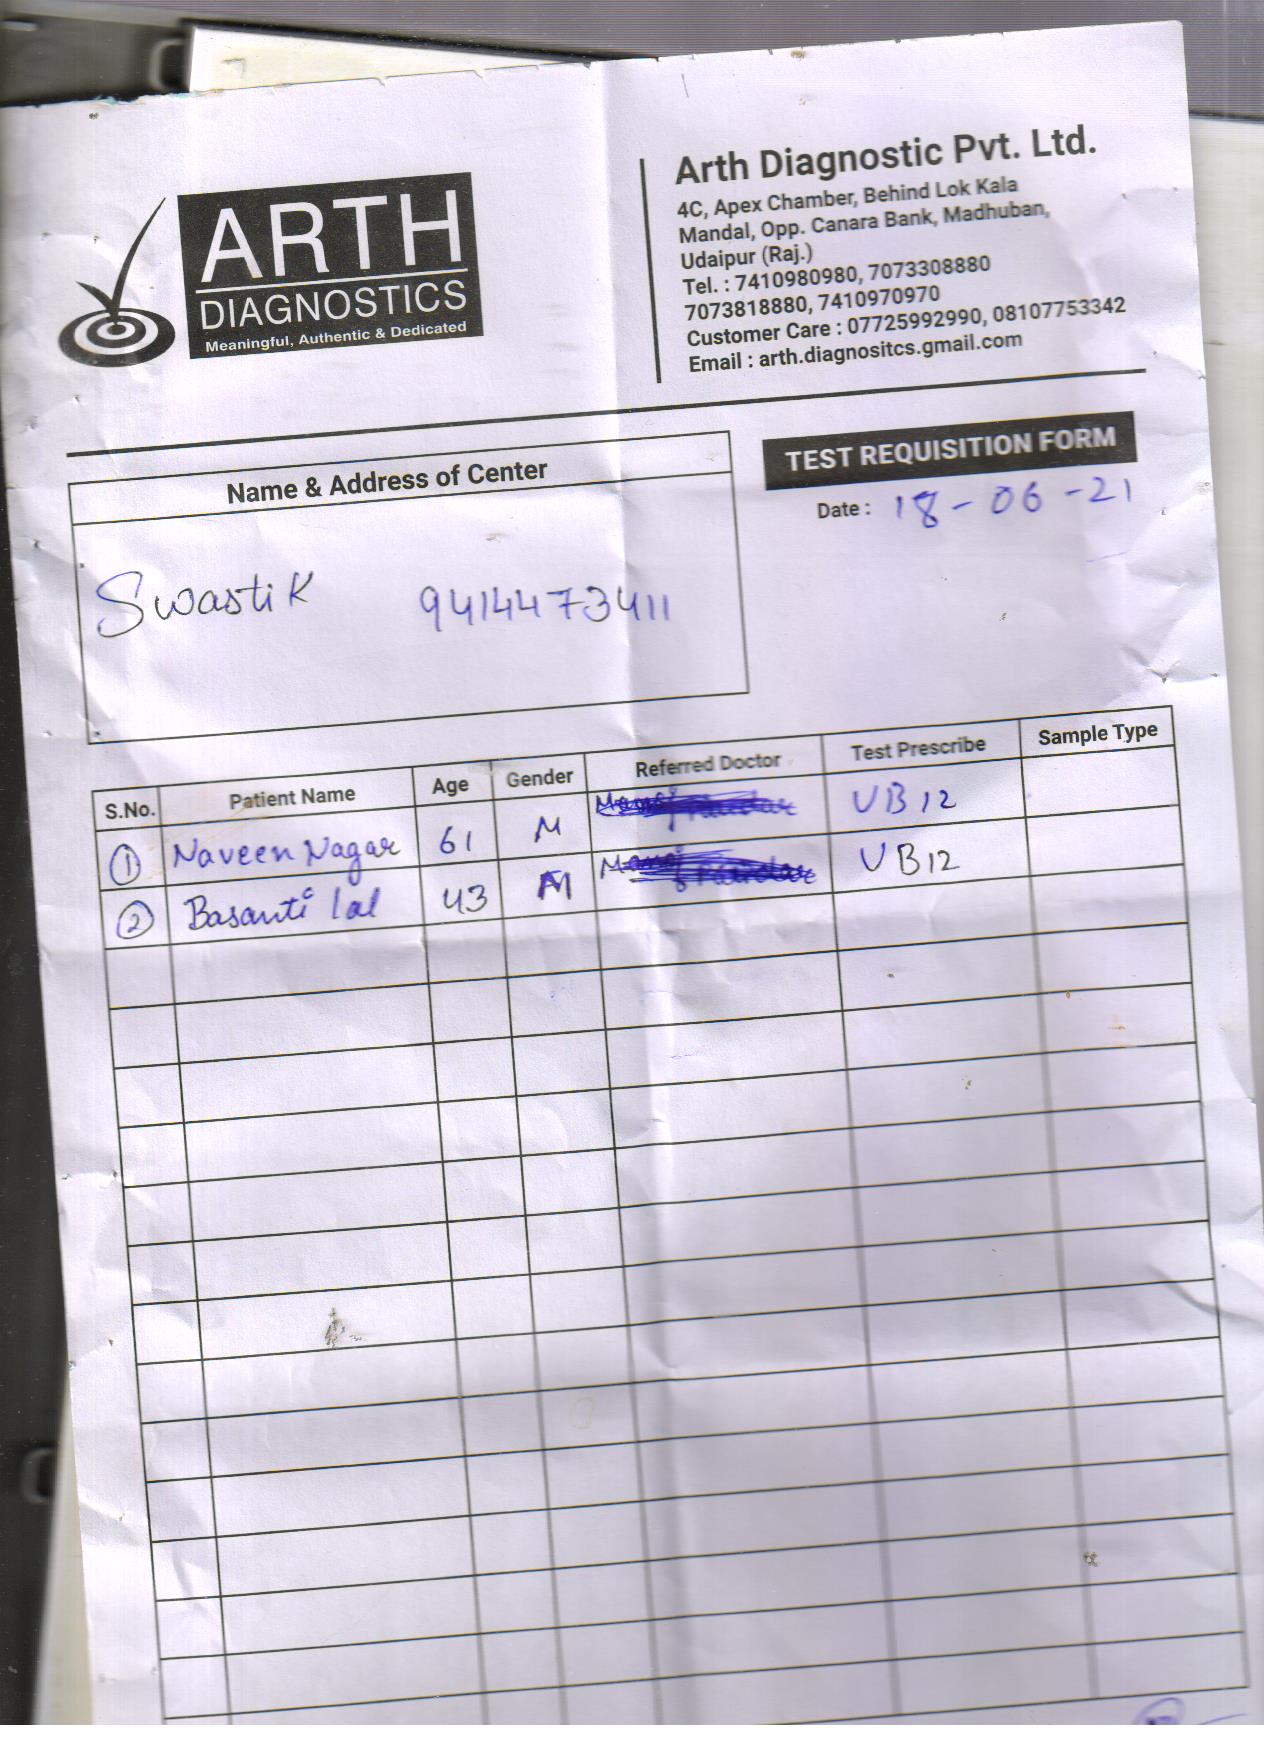 ARTH
DIAGNOSTICS
Meaningful, Authentic & Dedicated
Arth Diagnostic Pvt. Ltd.
4C, Apex Chamber, Behind Lok Kala
Mandal, Opp. Canara Bank, Madhuban,
Udaipur (Raj.)
Tel. : 7410980980, 7073308880
7073818880, 7410970970
Customer Care : 07725992990, 08107753342
Email : arth.diagnositcs.gmail.com
TEST REQUISITION FORM
Date : 18-06-21
Name & Address of Center
Swastik 9414473411
S.No. Patient Name Age Gender Referred Doctor Test Prescribe Sample Type
1 Naveen Nagar 61 M Manoj VB12
2 Basanti lal 43 M Manoj VB12